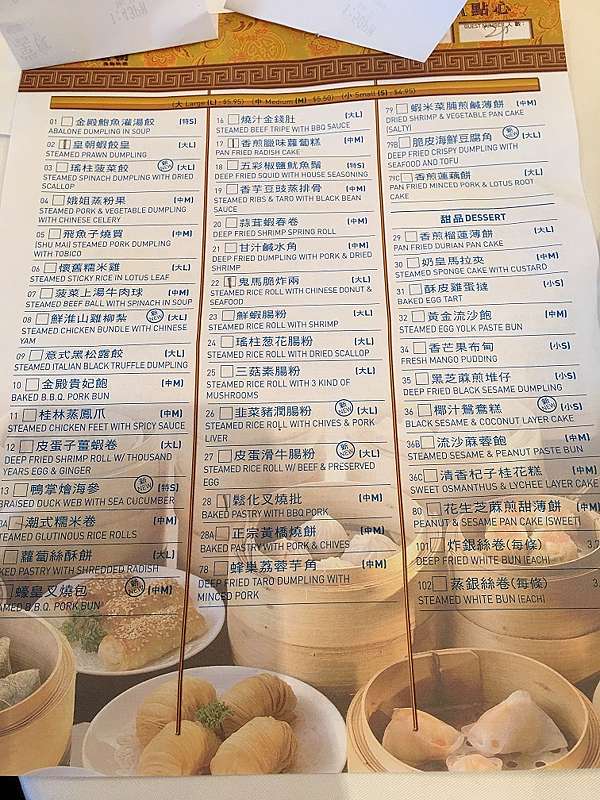 點心
GUEST NUMBER 人數:
(大 Large (L) - $5.95) (中 Medium (M) - $5.50) (小 Small (S) - $4.95)
01 金殿鮑魚灌湯餃 (特S)
ABALONE DUMPLING IN SOUP
02 皇朝蝦餃皇 (大L)
STEAMED PRAWN DUMPLING
03 瑤柱菠菜餃 NEW (大L)
STEAMED SPINACH DUMPLING WITH DRIED
SCALLOP
04 娥姐蒸粉果 (中M)
STEAMED PORK & VEGETABLE DUMPLING
WITH CHINESE CELERY
05 飛魚子燒買 (中M)
(SHU MAI) STEAMED PORK DUMPLING
WITH TOBICO
06 懷舊糯米雞 (大L)
STEAMED STICKY RICE IN LOTUS LEAF
07 菠菜上湯牛肉球 (中M)
STEAMED BEEF BALL WITH SPINACH IN SOUP
08 鮮淮山雞柳紮 NEW (大L)
STEAMED CHICKEN BUNDLE WITH CHINESE
YAM
09 意式黑松露餃 (大L)
STEAMED ITALIAN BLACK TRUFFLE DUMPLING
10 金殿貴妃飽 (中M)
BAKED B.B.Q. PORK BUN
11 桂林蒸鳳爪 (中M)
STEAMED CHICKEN FEET WITH SPICY SAUCE
12 皮蛋子薑蝦卷 (大L)
DEEP FRIED SHRIMP ROLL W/ THOUSAND
YEARS EGG & GINGER
13 鴨掌燴海參 NEW (特S)
BRAISED DUCK WEB WITH SEA CUCUMBER
潮式糯米卷 (中M)
STEAMED GLUTINOUS RICE ROLLS
蘿蔔絲酥餅 (大L)
BAKED PASTRY WITH SHREDDED RADISH
蠔皇叉燒包 NEW (中M)
STEAMED B.B.Q. PORK BUN
16 燒汁金錢肚 (大L)
STEAMED BEEF TRIPE WITH BBQ SAUCE
17 香煎臘味蘿蔔糕 (中M)
PAN FRIED RADISH CAKE
18 五彩椒鹽魷魚鬚 (特S)
DEEP FRIED SQUID WITH HOUSE SEASONING
19 香芋豆豉蒸排骨 (中M)
STEAMED RIBS & TARO WITH BLACK BEAN
SAUCE
20 蒜茸蝦春卷 (中M)
DEEP FRIED SHRIMP SPRING ROLL
21 甘汁鹹水角 (中M)
DEEP FRIED DUMPLING WITH PORK & DRIED
SHRIMP
22 鬼馬脆炸兩 (大L)
STEAMED RICE ROLL WITH CHINESE DONUT &
SEAFOOD
23 鮮蝦腸粉 (大L)
STEAMED RICE ROLL WITH SHRIMP
24 瑤柱葱花腸粉 (大L)
STEAMED RICE ROLL WITH DRIED SCALLOP
25 三菇素腸粉 (大L)
STEAMED RICE ROLL WITH 3 KIND OF
MUSHROOMS
26 韭菜豬潤腸粉 NEW (大L)
STEAMED RICE ROLL WITH CHIVES & PORK
LIVER
27 皮蛋滑牛腸粉 (大L)
STEAMED RICE ROLL W/ BEEF & PRESERVED
EGG
28 鬆化叉燒批 (中M)
BAKED PASTRY WITH BBQ PORK
28A 正宗黃橋燒餅 (中M)
BAKED PASTRY WITH PORK & CHIVES
78 蜂巢荔蓉芋角 (中M)
DEEP FRIED TARO DUMPLING WITH
MINCED PORK
79 蝦米菜脯煎鹹薄餅 (中M)
DRIED SHRIMP & VEGETABLE PAN CAKE
(SALTY)
79B 脆皮海鮮豆腐角 NEW (大L)
DEEP FRIED CRISPY DUMPLING WITH
SEAFOOD AND TOFU
79C 香煎蓮藕餅 (大L)
PAN FRIED MINCED PORK & LOTUS ROOT
CAKE
甜品DESSERT
29 香煎榴蓮薄餅 (大L)
PAN FRIED DURIAN PAN CAKE
30 奶皇馬拉夾 (中M)
STEAMED SPONGE CAKE WITH CUSTARD
31 酥皮雞蛋撻 (小S)
BAKED EGG TART
32 黃金流沙飽 (中M)
STEAMED EGG YOLK PASTE BUN
34 香芒果布甸 (小S)
FRESH MANGO PUDDING
35 黑芝麻煎堆仔 (小S)
DEEP FRIED BLACK SESAME DUMPLING
36 椰汁鴛鴦糕 NEW (小S)
BLACK SESAME & COCONUT LAYER CAKE
36B 流沙麻蓉飽 (中M)
STEAMED SESAME & PEANUT PASTE BUN
36C 清香杞子桂花糕 (小S)
SWEET OSMANTHUS & LYCHEE LAYER CAKE
80 花生芝麻煎甜薄餅 (中M)
PEANUT & SESAME PAN CAKE (SWEET)
101 炸銀絲卷(每條)
DEEP FRIED WHITE BUN (EACH)
102 蒸銀絲卷(每條)
STEAMED WHITE BUN (EACH)